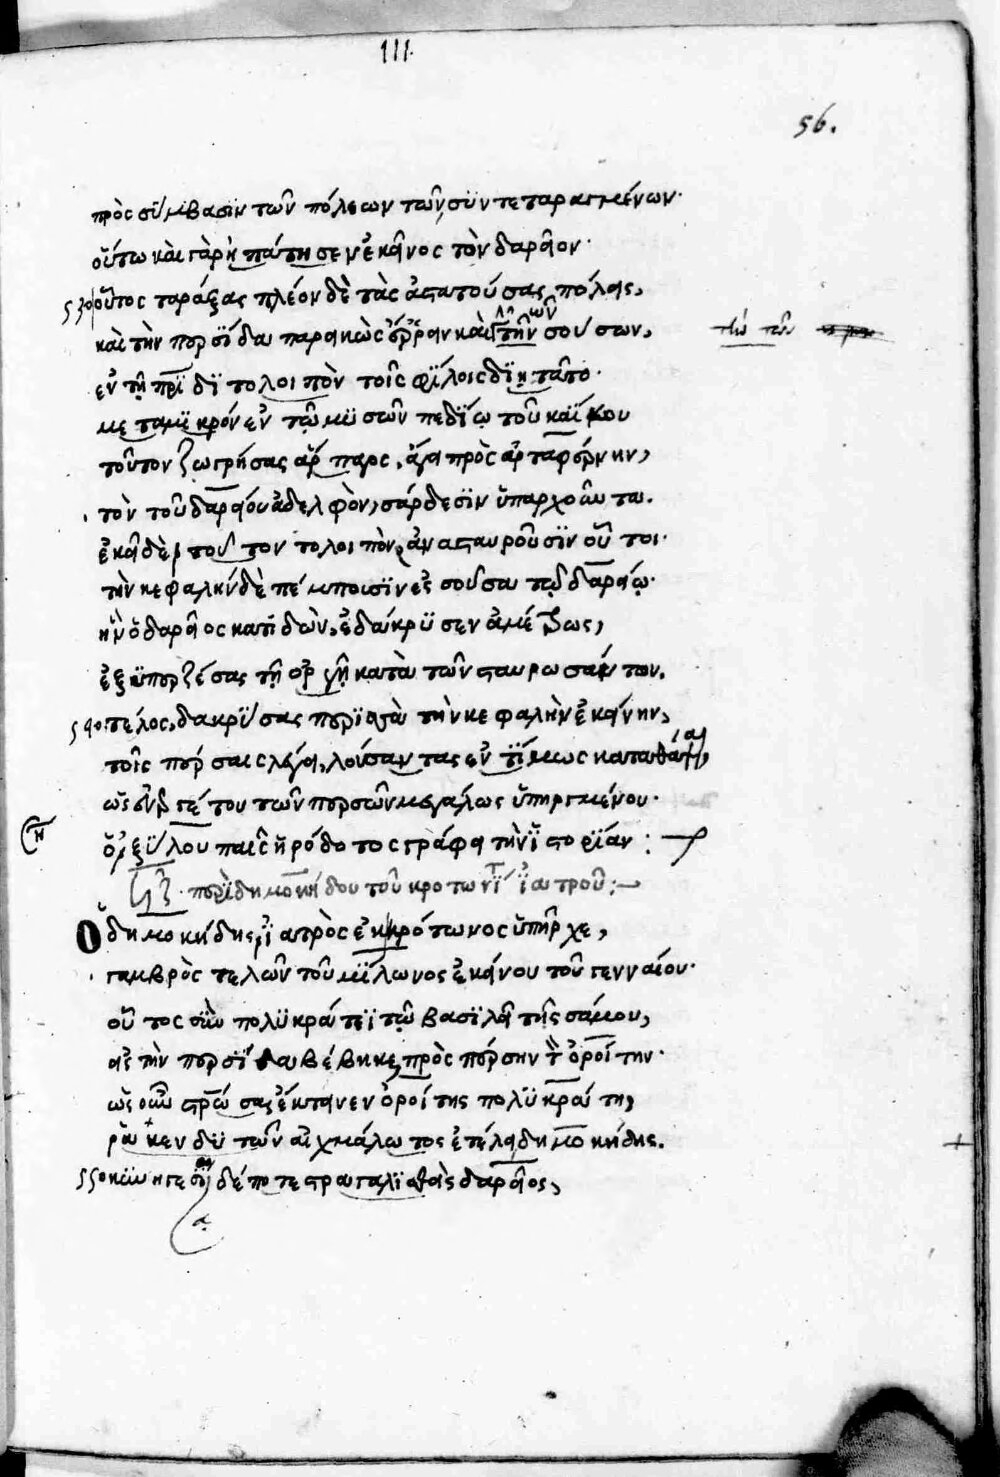 III.
56.
πρὸς σύμβασιν τῶν πόλεων τῶν συντεταραγμένων·
οὕτω καὶ γὰρ ἠπάτησεν ἐκεῖνος τὸν δαρεῖον·
530 οὗτος ταράξας πλέον δὲ τὰς ἀστατούσας πόλεις,
καὶ τὴν περσίδα παρεικὼς ὁρᾶν καὶ τὴν σούσων,
ἐν τῇ
τοῖς φίλοις
μεταμικρόν ἐν τῷ μυσῶν πεδίῳ τοῦ καΐκου
τοῦτον ζωγρήσας ἅρπαγος, ἄγει πρὸς ἀρταφέρνην,
τὸν τοῦ δαρείου ἀδελφὸν, σάρδεσιν ὕπαρχον
ἐκεῖ δὲ τοῦτον τὸ λοιπὸν, ἀνασταυροῦσιν οὗτοι·
τὴν κεφαλὴν δὲ πέμπουσιν ἐς σοῦσα τῷ δαρείῳ·
ἣν ὁ δαρεῖος κατιδὼν, ἐδάκρυσεν ἀμέτρως,
ἐξυπερζέσας τῇ ὀργῇ κατὰ τῶν σταυρωσάντων.
540 τέλος, δακρύσας περισσὰ τὴν κεφαλὴν ἐκείνην,
τοῖς πέρσαις λέγει, λούσαντας ἐντίμως καταθάψαι,
ὡς εὐεργέτου τῶν περσῶν μεγάλως ὑπηργμένου·
ὀξύλου παῖς ἡρόδοτος γράφει τὴν ἱστορίαν :
περὶ δημοκήδου τοῦ κροτωνι ἰατροῦ :
Ὁ δημοκήδης, ἰατρὸς ἐκ κρότωνος ὑπῆρχε,
γαμβρὸς τελῶν τοῦ μίλωνος ἐκείνου τοῦ γενναίου·
οὗτος σὺν πολυκράτει τῷ βασιλεῖ τῆς σάμου,
εἰς τὴν περσίδα βέβηκε, πρὸς πέρσην τὸν ὀροίτην·
ὡς οὖν σταυρώσας ἔκτανεν ὀροίτης πολυκράτη,
ἐτέλει δημοκήδης.
550 κυνηγεσίῳ δέ ποτε στραγαλισθεὶς δαρεῖος,